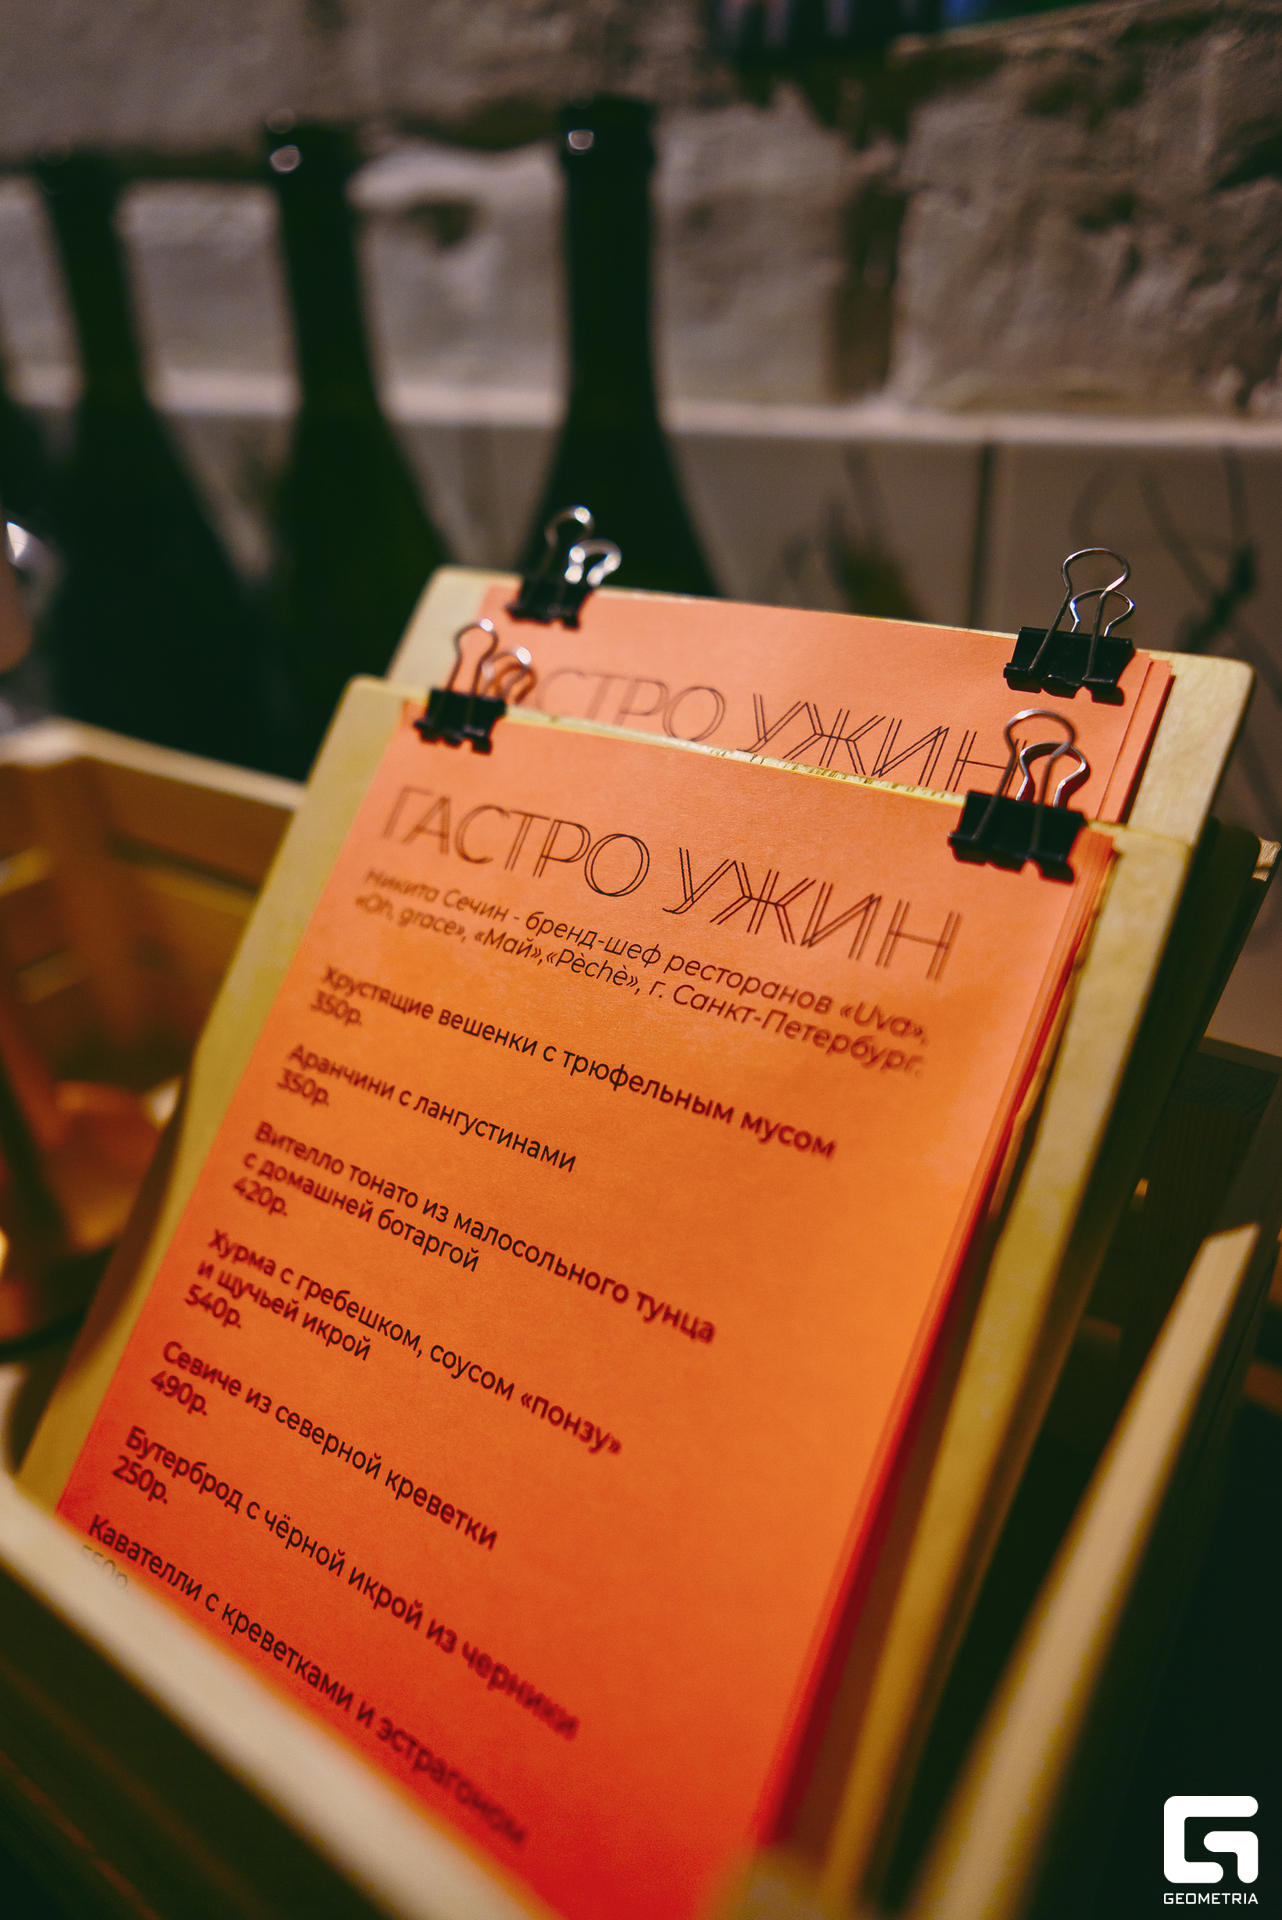 ГАСТРО УЖИН
ГАСТРО УЖИН
Никита Сечин - бренд-шеф ресторанов «Uva»,
«Oh, grace», «Май»,«Pèchè», г. Санкт-Петербург.
Хрустящие вешенки с трюфельным мусом
350р.
Аранчини с лангустинами
350р.
Вителло тонато из малосольного тунца
с домашней ботаргой
420р.
Хурма с гребешком, соусом «понзу»
и щучьей икрой
540р.
Севиче из северной креветки
490р.
Бутерброд с чёрной икрой из черники
250р.
Кавателли с креветками и эстрагоном
550р.
GEOMETRIA